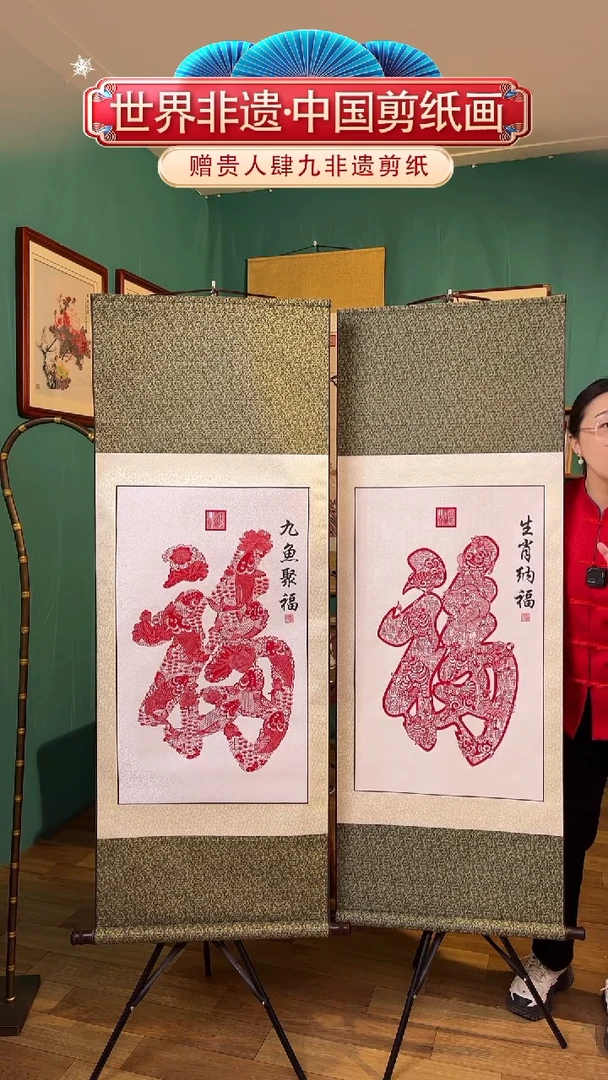 世界非遗·中国剪纸画
赠贵人肆九非遗剪纸
九魚聚福
福
生肖纳福
福